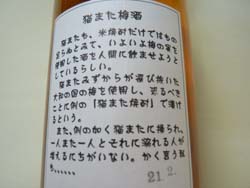 猫また梅酒
猫またも、米焼酎だけではもの
足らぬとみて、いよいよ梅の実を
使用した酒を人間に飲ませようと
しているらしい。
猫またみずからが選び抜いた
大和の国の梅を使用し、恐るべき
ことに例の「猫また焼酎」で漬け
るという。
また、例の如く猫またに操られ、
一人また一人とそれに溺れる人が
増えるにちがいない。かく言う私
も.......
21. 2.